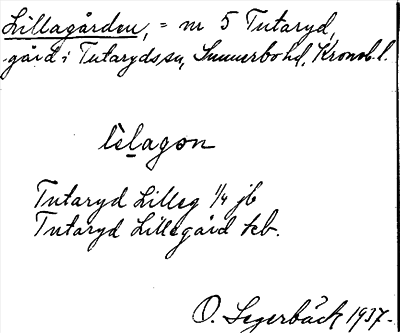 Lillagården, = nr 5 Tutaryd,
gård i Tutaryds sn, Sunnerbo hd, Kronob. l.
lìlagon
Tutaryd Lilleg 1/4 jb
Tutaryd Lillegård keb.
O. Segerbäck 1937-